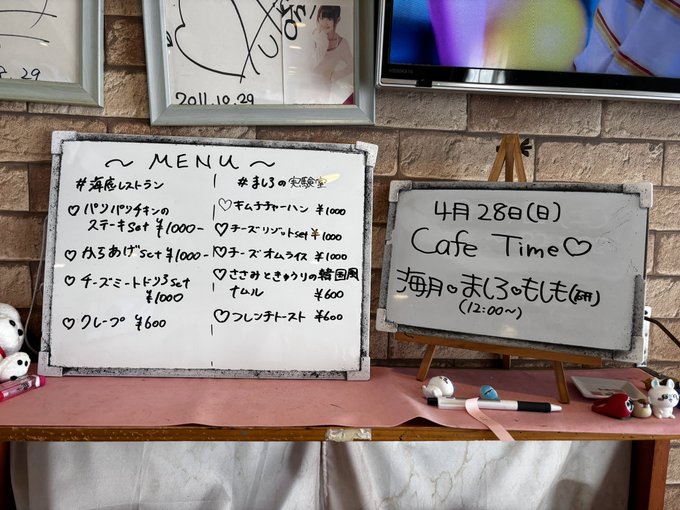 .8.29
2011.10.29
~ MENU ~
#海底レストラン
♡パリパリチキンの
ステーキset ¥1000-
♡からあげset ¥1000-
♡チーズミートドリアset
¥1000
♡クレープ ¥600
#ましろの実験室
♡キムチチャーハン ¥1000
♡チーズリゾットset ¥1000
♡チーズオムライス ¥1000
♡ささみときゅうりの韓国風
ナムル ¥600
♡フレンチトースト ¥600
4月28日(日)
Cafe Time♡
海月♡ましろ♡もしも(研)
(12:00~)